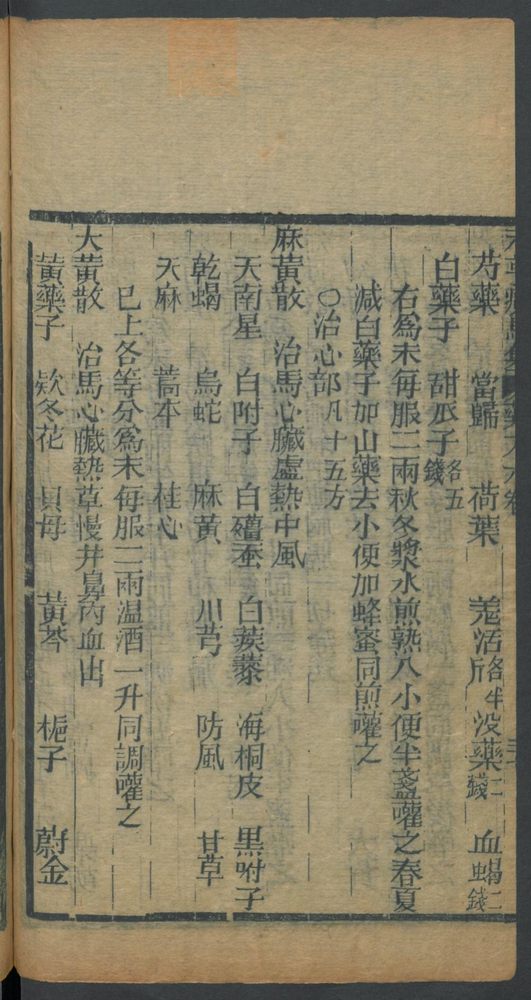 芍藥　當歸　荷葉　羗活各半斤　沒藥二錢　血蝎二錢
白藥子　甜瓜子各五錢
右爲末每服二兩秋冬漿水煎熟入小便半盞嚾之春夏
減白藥子加山藥去小便加蜂蜜同煎嚾之
○治心部凡十五方
麻黃散　治馬心臟虛熱中風
天南星　白附子　白殭蚕　白蒺藜　海桐皮　黒附子
乾蝎　烏蛇　麻黃　川芎　防風　甘草
天麻　藁本　桂心
已上各等分爲末每服二兩温酒一升同調嚾之
大黃散　治馬心臟熱草慢并鼻內血出
黃藥子　欵冬花　貝母　黃芩　梔子　蔚金